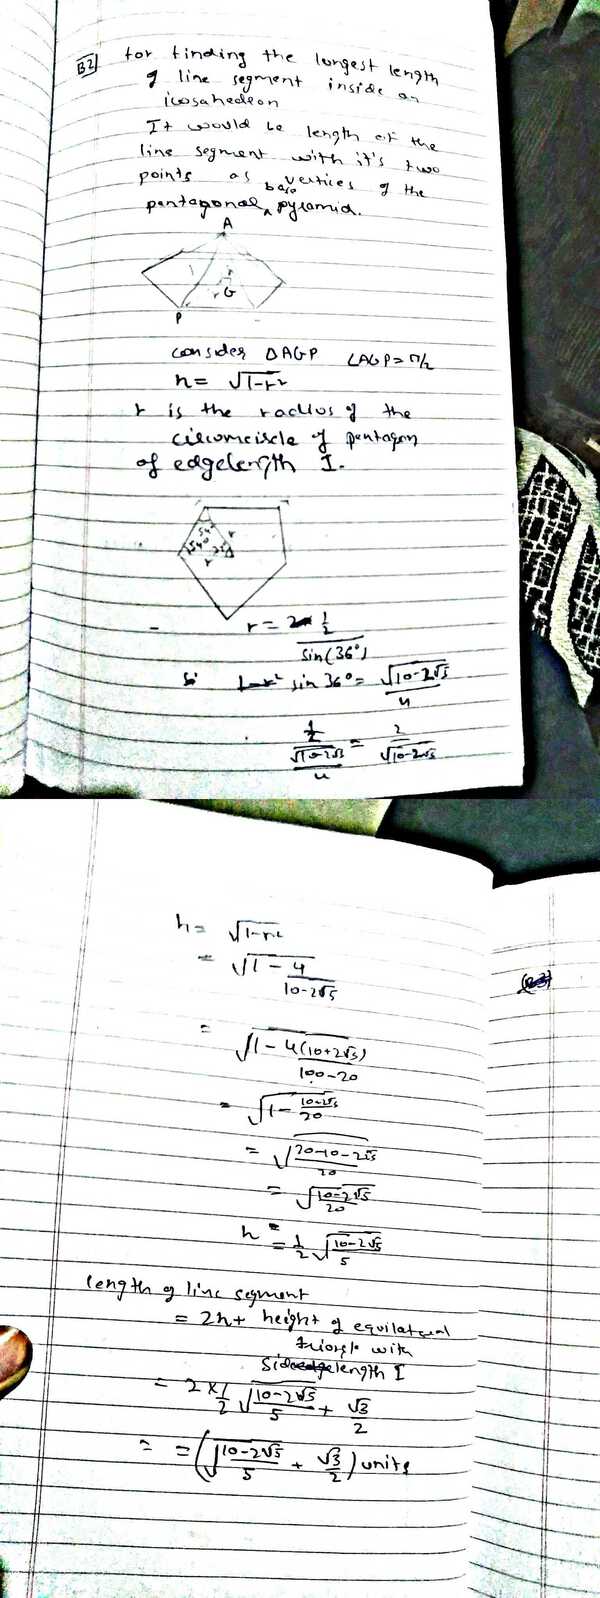 B2 for finding the longest length
of line segment inside an
icosahedron
It would be length of the
line segment with it's two
points as vertices of the
base
pentagonal ^ pyramid.
A
1 r
r G
P
consider ΔAGP ∠AGP = π/2
h = √(1-r²)
r is the radius of the
circumcircle of pentagon
of edgelength 1.
54°
54° r
r
r = (1/2)/sin(36°)
sin 36° = √(10-2√5)/4
(1/2)/(√(10-2√5)/4) = 2/√(10-2√5)
h = √(1-r²)
= √(1 - 4/(10-2√5))
= √(1 - 4(10+2√5)/(100-20))
= √(1 - (10-2√5)/20)
= √((20-10-2√5)/20)
= √((10-2√5)/20)
h = 1/2 √((10-2√5)/5)
length of line segment
= 2h + height of equilateral
triangle with
side length 1
= 2 × 1/2 √((10-2√5)/5) + √3/2
= = (√((10-2√5)/5) + √3/2) units